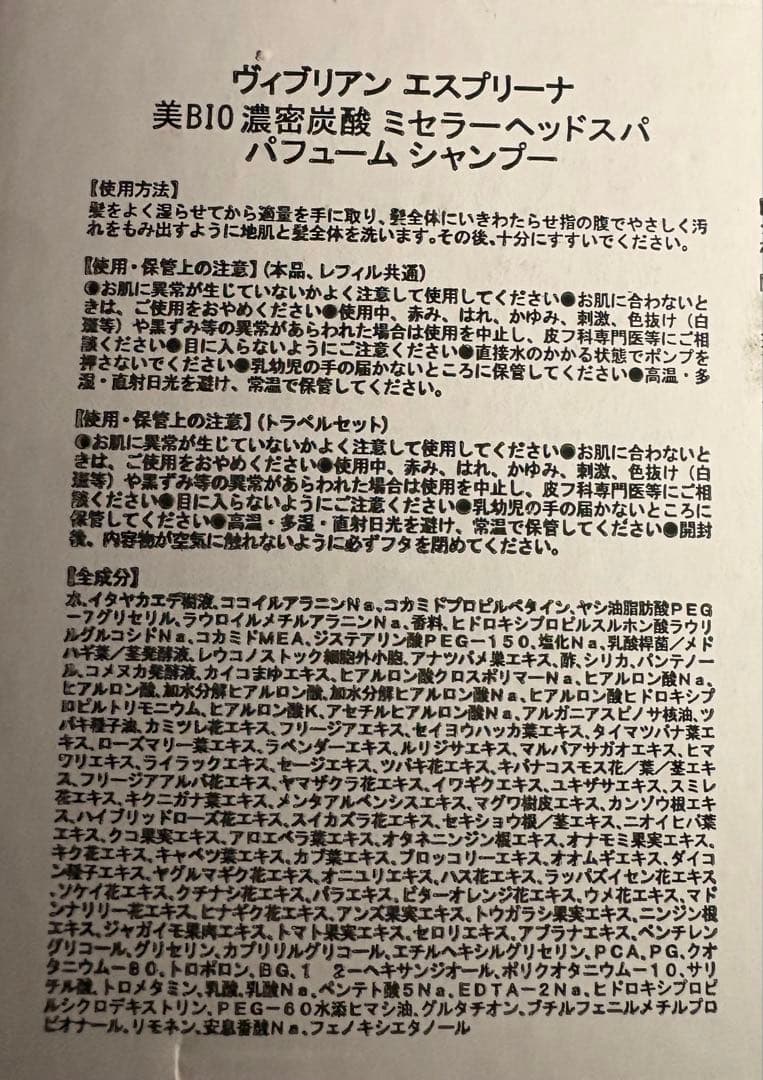 ヴィブリアン エスプリーナ
美BIO 濃密炭酸 ミセラーヘッドスパ
パフューム シャンプー
【使用方法】
髪をよく湿らせてから適量を手に取り、髪全体にいきわたらせ指の腹でやさしく汚
れをもみ出すように地肌と髪全体を洗います。その後、十分にすすいでください。
【使用・保管上の注意】(本品、レフィル共通)
●お肌に異常が生じていないかよく注意して使用してください●お肌に合わないと
きは、ご使用をおやめください●使用中、赤み、はれ、かゆみ、刺激、色抜け(白
斑等)や黒ずみ等の異常があらわれた場合は使用を中止し、皮フ科専門医等にご相
談ください●目に入らないようにご注意ください●直接水のかかる状態でポンプを
押さないでください●乳幼児の手の届かないところに保管してください●高温・多
湿・直射日光を避け、常温で保管してください。
【使用・保管上の注意】(トラベルセット)
●お肌に異常が生じていないかよく注意して使用してください●お肌に合わないと
きは、ご使用をおやめください●使用中、赤み、はれ、かゆみ、刺激、色抜け(白
斑等)や黒ずみ等の異常があらわれた場合は使用を中止し、皮フ科専門医等にご相
談ください●目に入らないようにご注意ください●乳幼児の手の届かないところに
保管してください●高温・多湿・直射日光を避け、常温で保管してください●開封
後、内容物が空気に触れないように必ずフタを閉めてください。
【全成分】
水、イタヤカエデ樹液、ココイルアラニンNa、コカミドプロピルベタイン、ヤシ油脂肪酸PEG
-7グリセリル、ラウロイルメチルアラニンNa、香料、ヒドロキシプロピルスルホン酸ラウリ
ルグルコシドNa、コカミドMEA、ジステアリン酸PEG-150、塩化Na、乳酸桿菌/メド
ハギ葉/茎発酵液、レウコノストック細胞外小胞、アナツバメ巣エキス、酢、シリカ、パンテノー
ル、コメヌカ発酵液、カイコまゆエキス、ヒアルロン酸クロスポリマーNa、ヒアルロン酸Na、
ヒアルロン酸、加水分解ヒアルロン酸、加水分解ヒアルロン酸Na、ヒアルロン酸ヒドロキシプ
ロピルトリモニウム、ヒアルロン酸K、アセチルヒアルロン酸Na、アルガニアスピノサ核油、ツ
バキ種子油、カミツレ花エキス、フリージアエキス、セイヨウハッカ葉エキス、タイマツバナ葉エ
キス、ローズマリー葉エキス、ラベンダーエキス、ルリジサエキス、マルバアサガオエキス、ヒマ
ワリエキス、ライラックエキス、セージエキス、ツバキ花エキス、キバナコスモス花/葉/茎エキ
ス、フリージアアルバ花エキス、ヤマザクラ花エキス、イワギクエキス、ユキザサエキス、スミレ
花エキス、キクニガナ葉エキス、メンタアルベンシスエキス、マグワ樹皮エキス、カンゾウ根エキ
ス、ハイブリッドローズ花エキス、スイカズラ花エキス、セキショウ根/茎エキス、ニオイヒバ葉
エキス、クコ果実エキス、アロエベラ葉エキス、オタネニンジン根エキス、オナモミ果実エキス、
キク花エキス、キャベツ葉エキス、カブ葉エキス、ブロッコリーエキス、オオムギエキス、ダイコ
ン種子エキス、ヤグルマギク花エキス、オニユリエキス、ハス花エキス、ラッパズイセン花エキス
、ソケイ花エキス、クチナシ花エキス、バラエキス、ビターオレンジ花エキス、ウメ花エキス、マド
ンナリリー花エキス、ヒナギク花エキス、アンズ果実エキス、トウガラシ果実エキス、ニンジン根
エキス、ジャガイモ果肉エキス、トマト果実エキス、セロリエキス、アブラナエキス、ペンチレン
グリコール、グリセリン、カプリリルグリコール、エチルヘキシルグリセリン、PCA、PG、クオ
タニウム-80、トロポロン、BG、1 2-ヘキサンジオール、ポリクオタニウム-10、サリ
チル酸、トロメタミン、乳酸、乳酸Na、ペンテト酸5Na、EDTA-2Na、ヒドロキシプロピ
ルシクロデキストリン、PEG-60水添ヒマシ油、グルタチオン、ブチルフェニルメチルプロ
ピオナール、リモネン、安息香酸Na、フェノキシエタノール